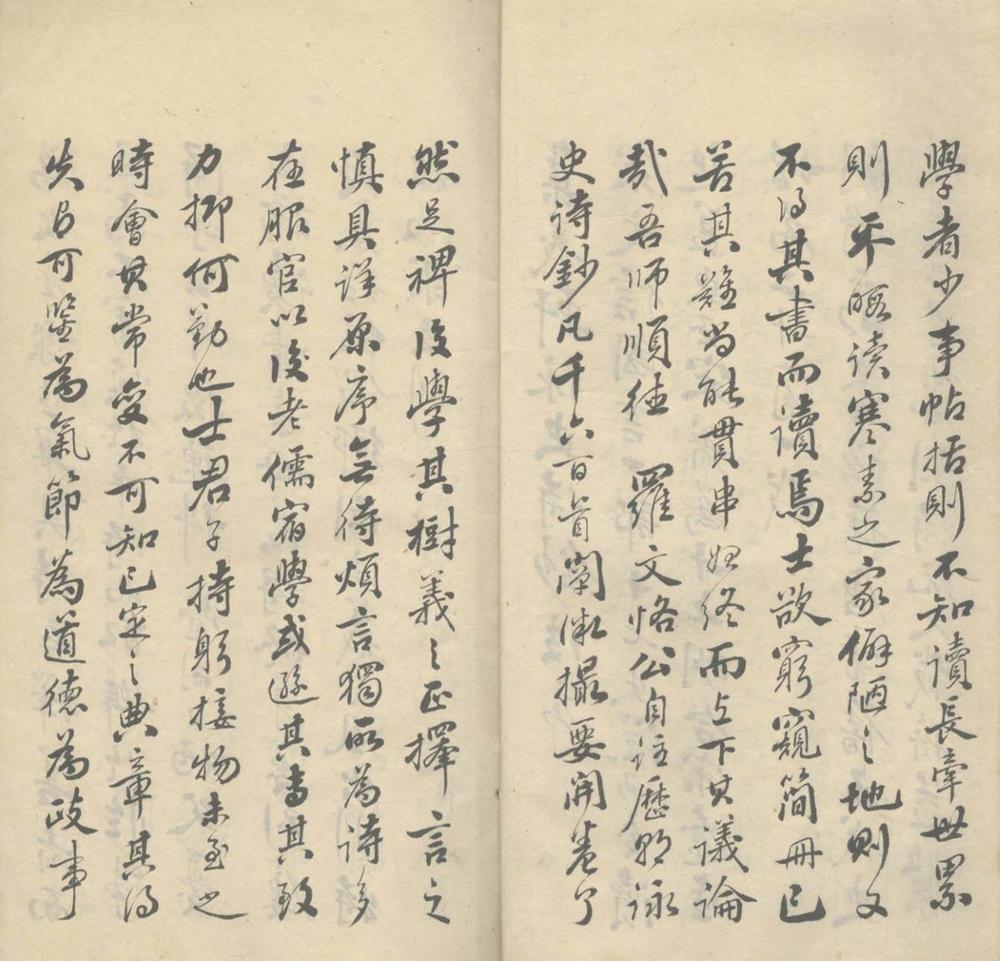 學者少事帖括則不知讀長牽世累
則不暇讀寒素之家僻陋之地則又
不得其書而讀焉士欲窮窺簡冊已
苦其難尚能貫串始終而上下其議論
哉吾師順德羅文恪公自注歷朝詠
史詩鈔凡千六百首闡微撮要開卷了
然足裨後學其樹義之正擇言之
慎具詳原序無待煩言獨所為詩多
在服官以後老儒宿學或遜其專其致
力抑何勤也士君子持躬接物未至之
時會其常變不可知已定之典章其得
失自可鑒為氣節為道德為政事